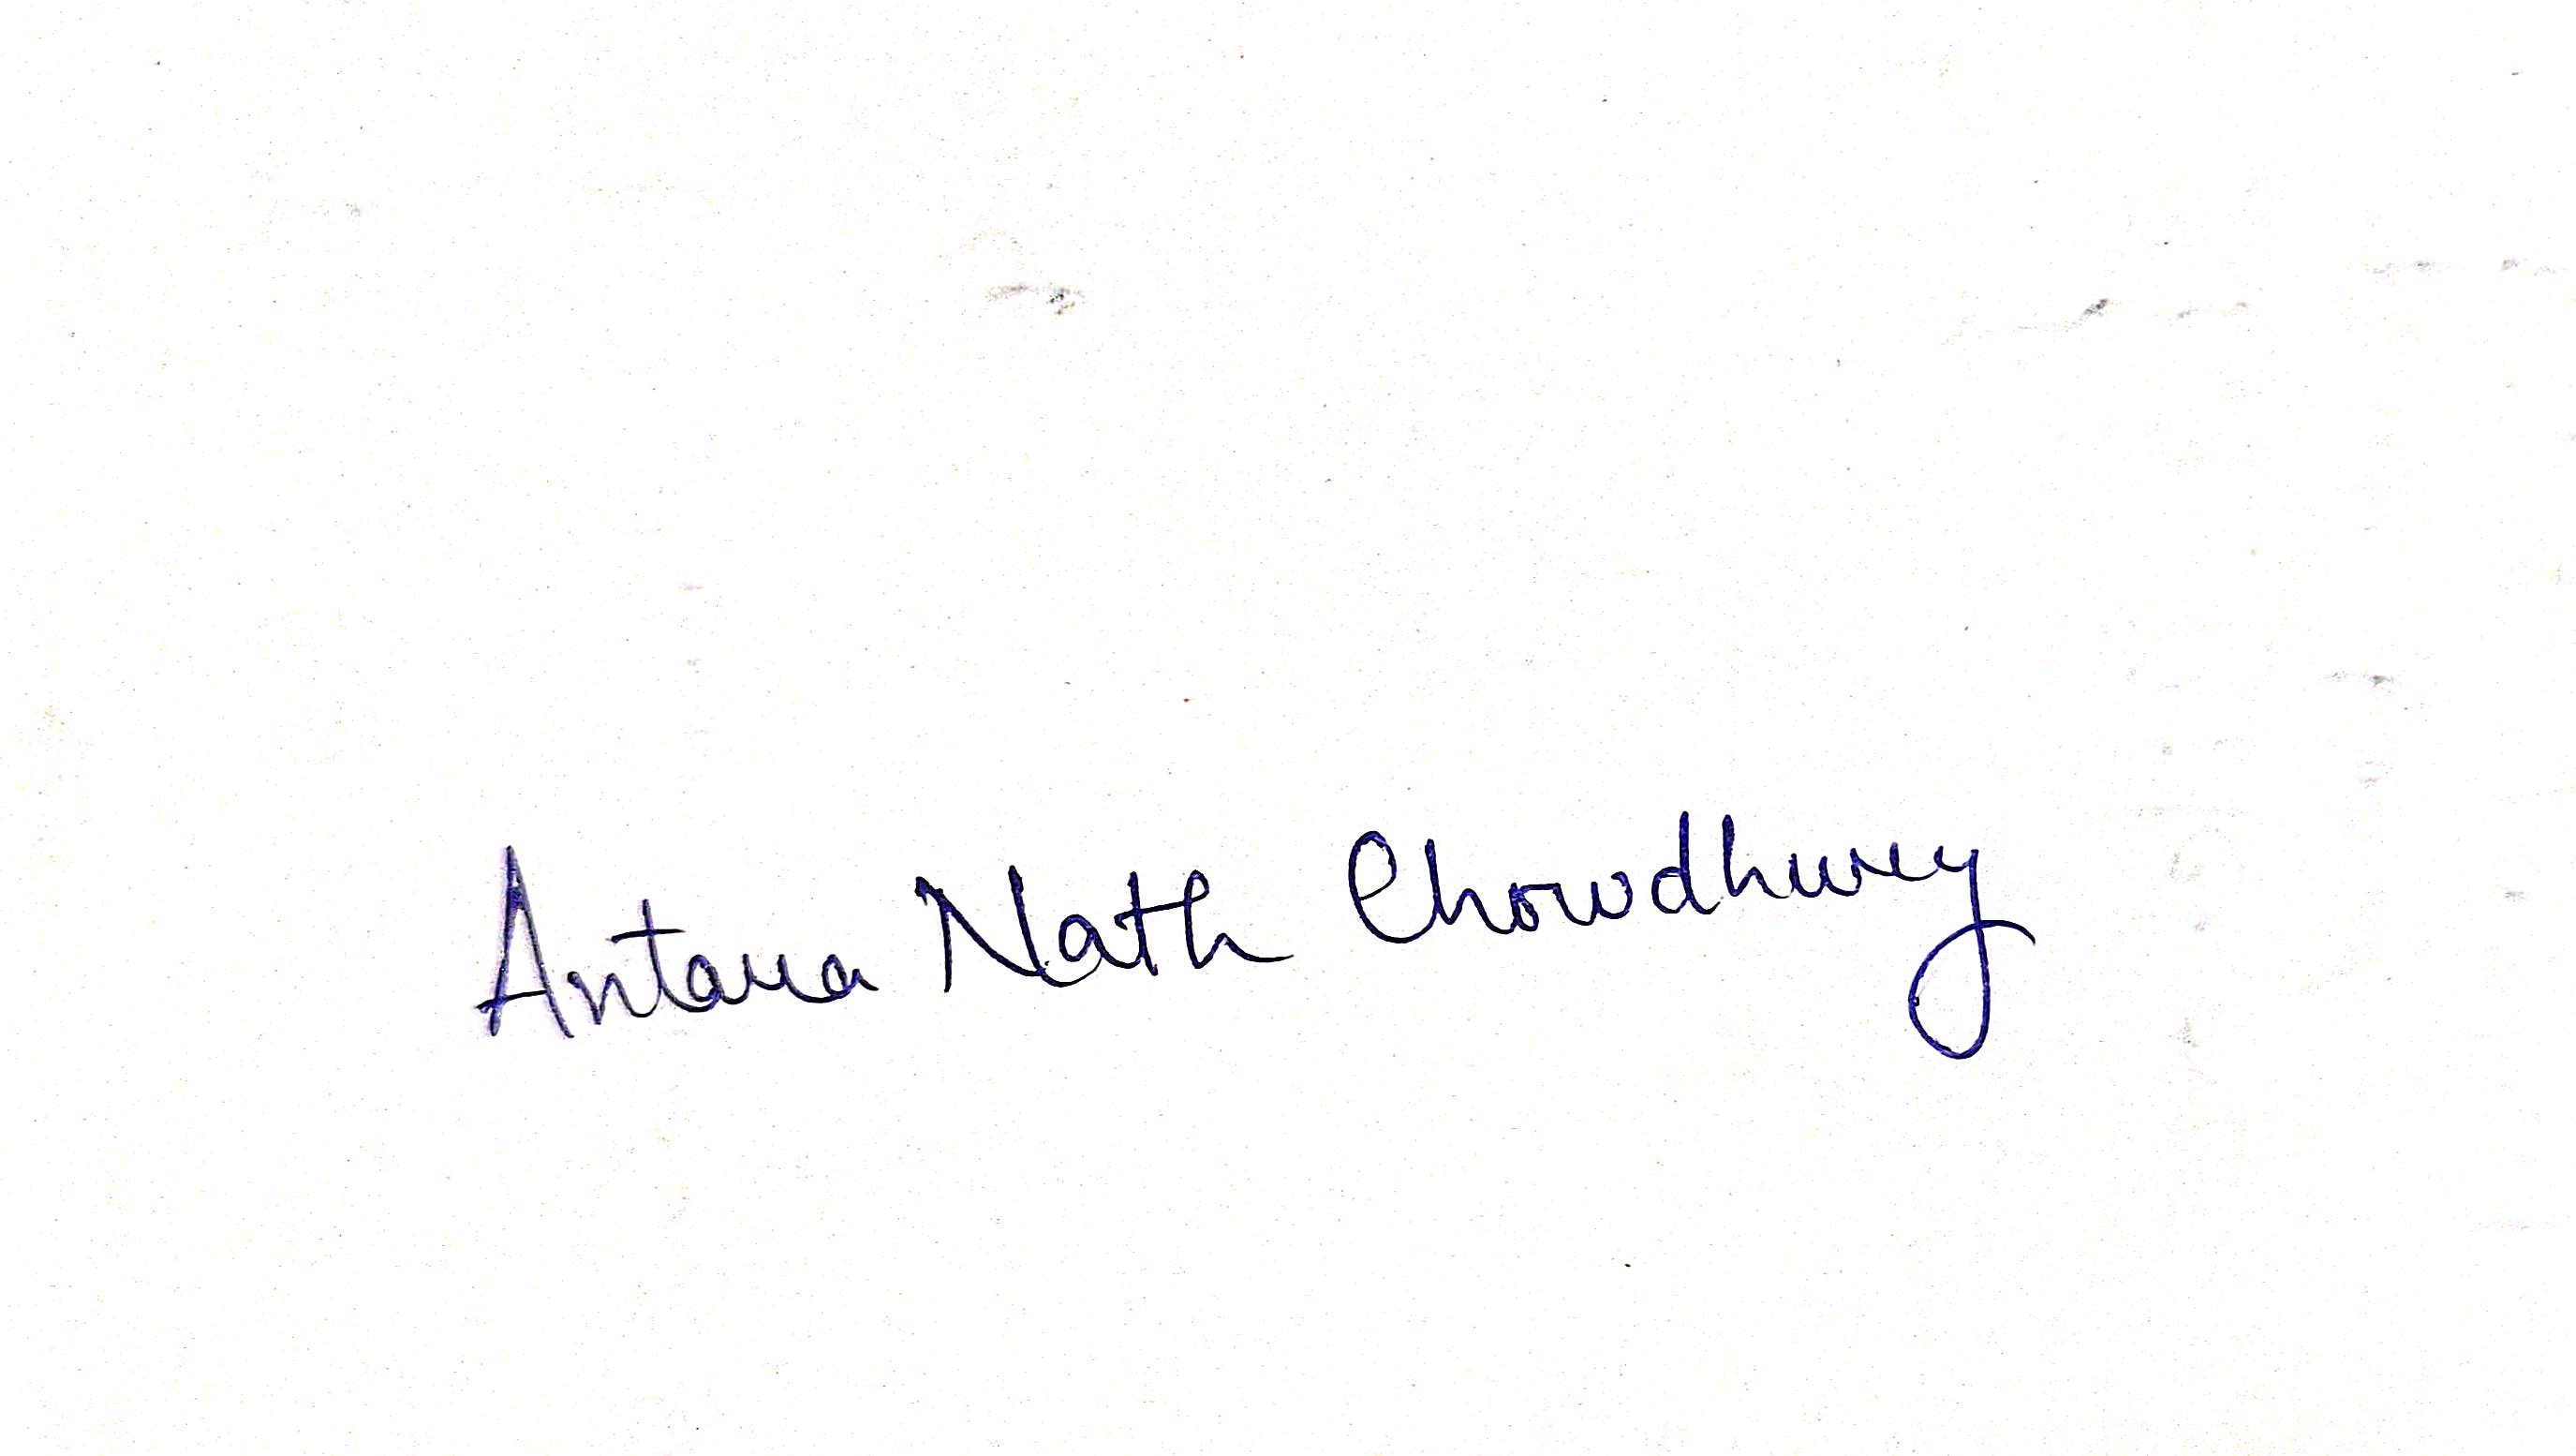 Antara Nath Chowdhury